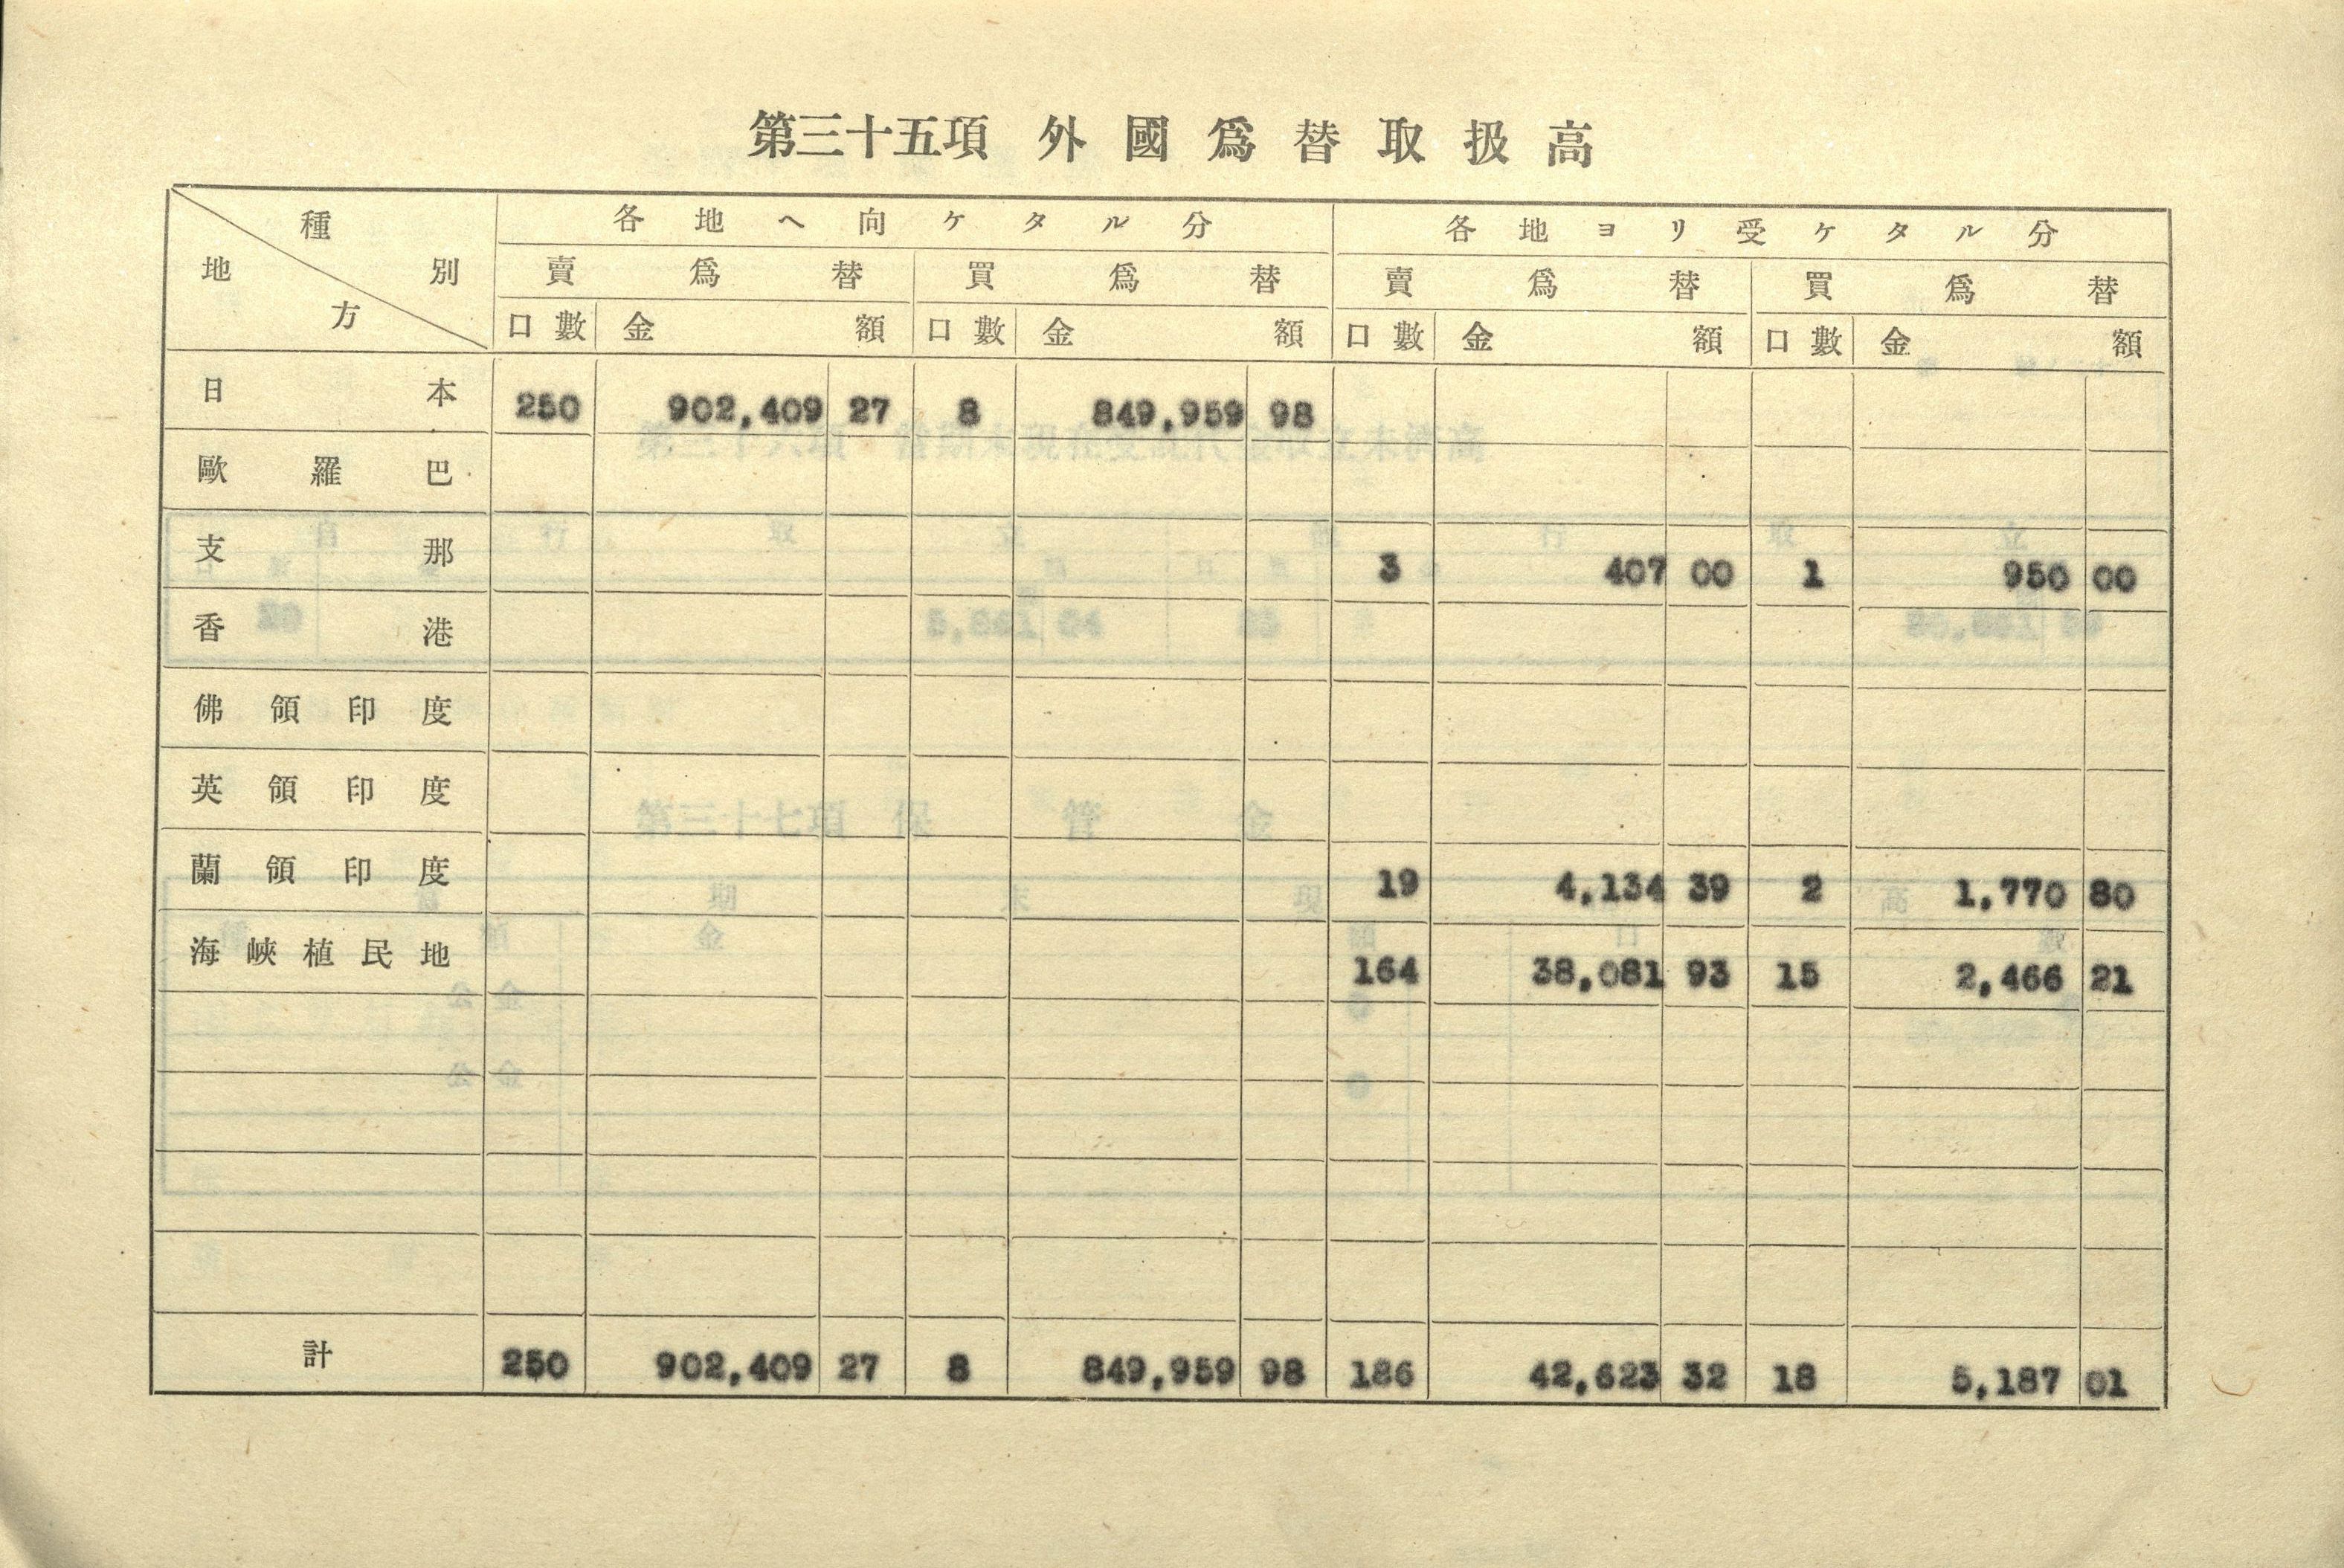 第三十五項 外國爲替取扱高
種別 地方 各地ヘ向ケタル分 各地ヨリ受ケタル分
賣爲替 買爲替 賣爲替 買爲替
口數 金額 口數 金額 口數 金額 口數 金額
日本 250 902,409 27 8 849,959 98
歐羅巴
支那 3 407 00 1 950 00
香港
佛領印度
英領印度
蘭領印度 19 4,134 39 2 1,770 80
海峽植民地 164 38,081 93 15 2,466 21
計 250 902,409 27 8 849,959 98 186 42,623 32 18 5,187 01